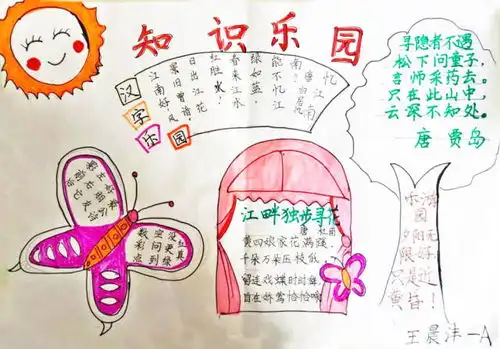 知识乐园
汉
字
乐
园
江南好,
风景旧曾谙!
日出江花
红胜火!
春来江水
绿如蓝,
能不忆江
南!
忆江南
寻隐者不遇
松下问童子,
言师采药去。
只在此山中,
云深不知处。
唐 贾岛
江畔独步寻花
唐 杜甫
黄四娘家花满蹊,
千朵万朵压枝低。
留连戏蝶时时舞,
自在娇莺恰恰啼
乐游
园
夕阳无
限好,
只是近
黄昏!
王晨沣一A